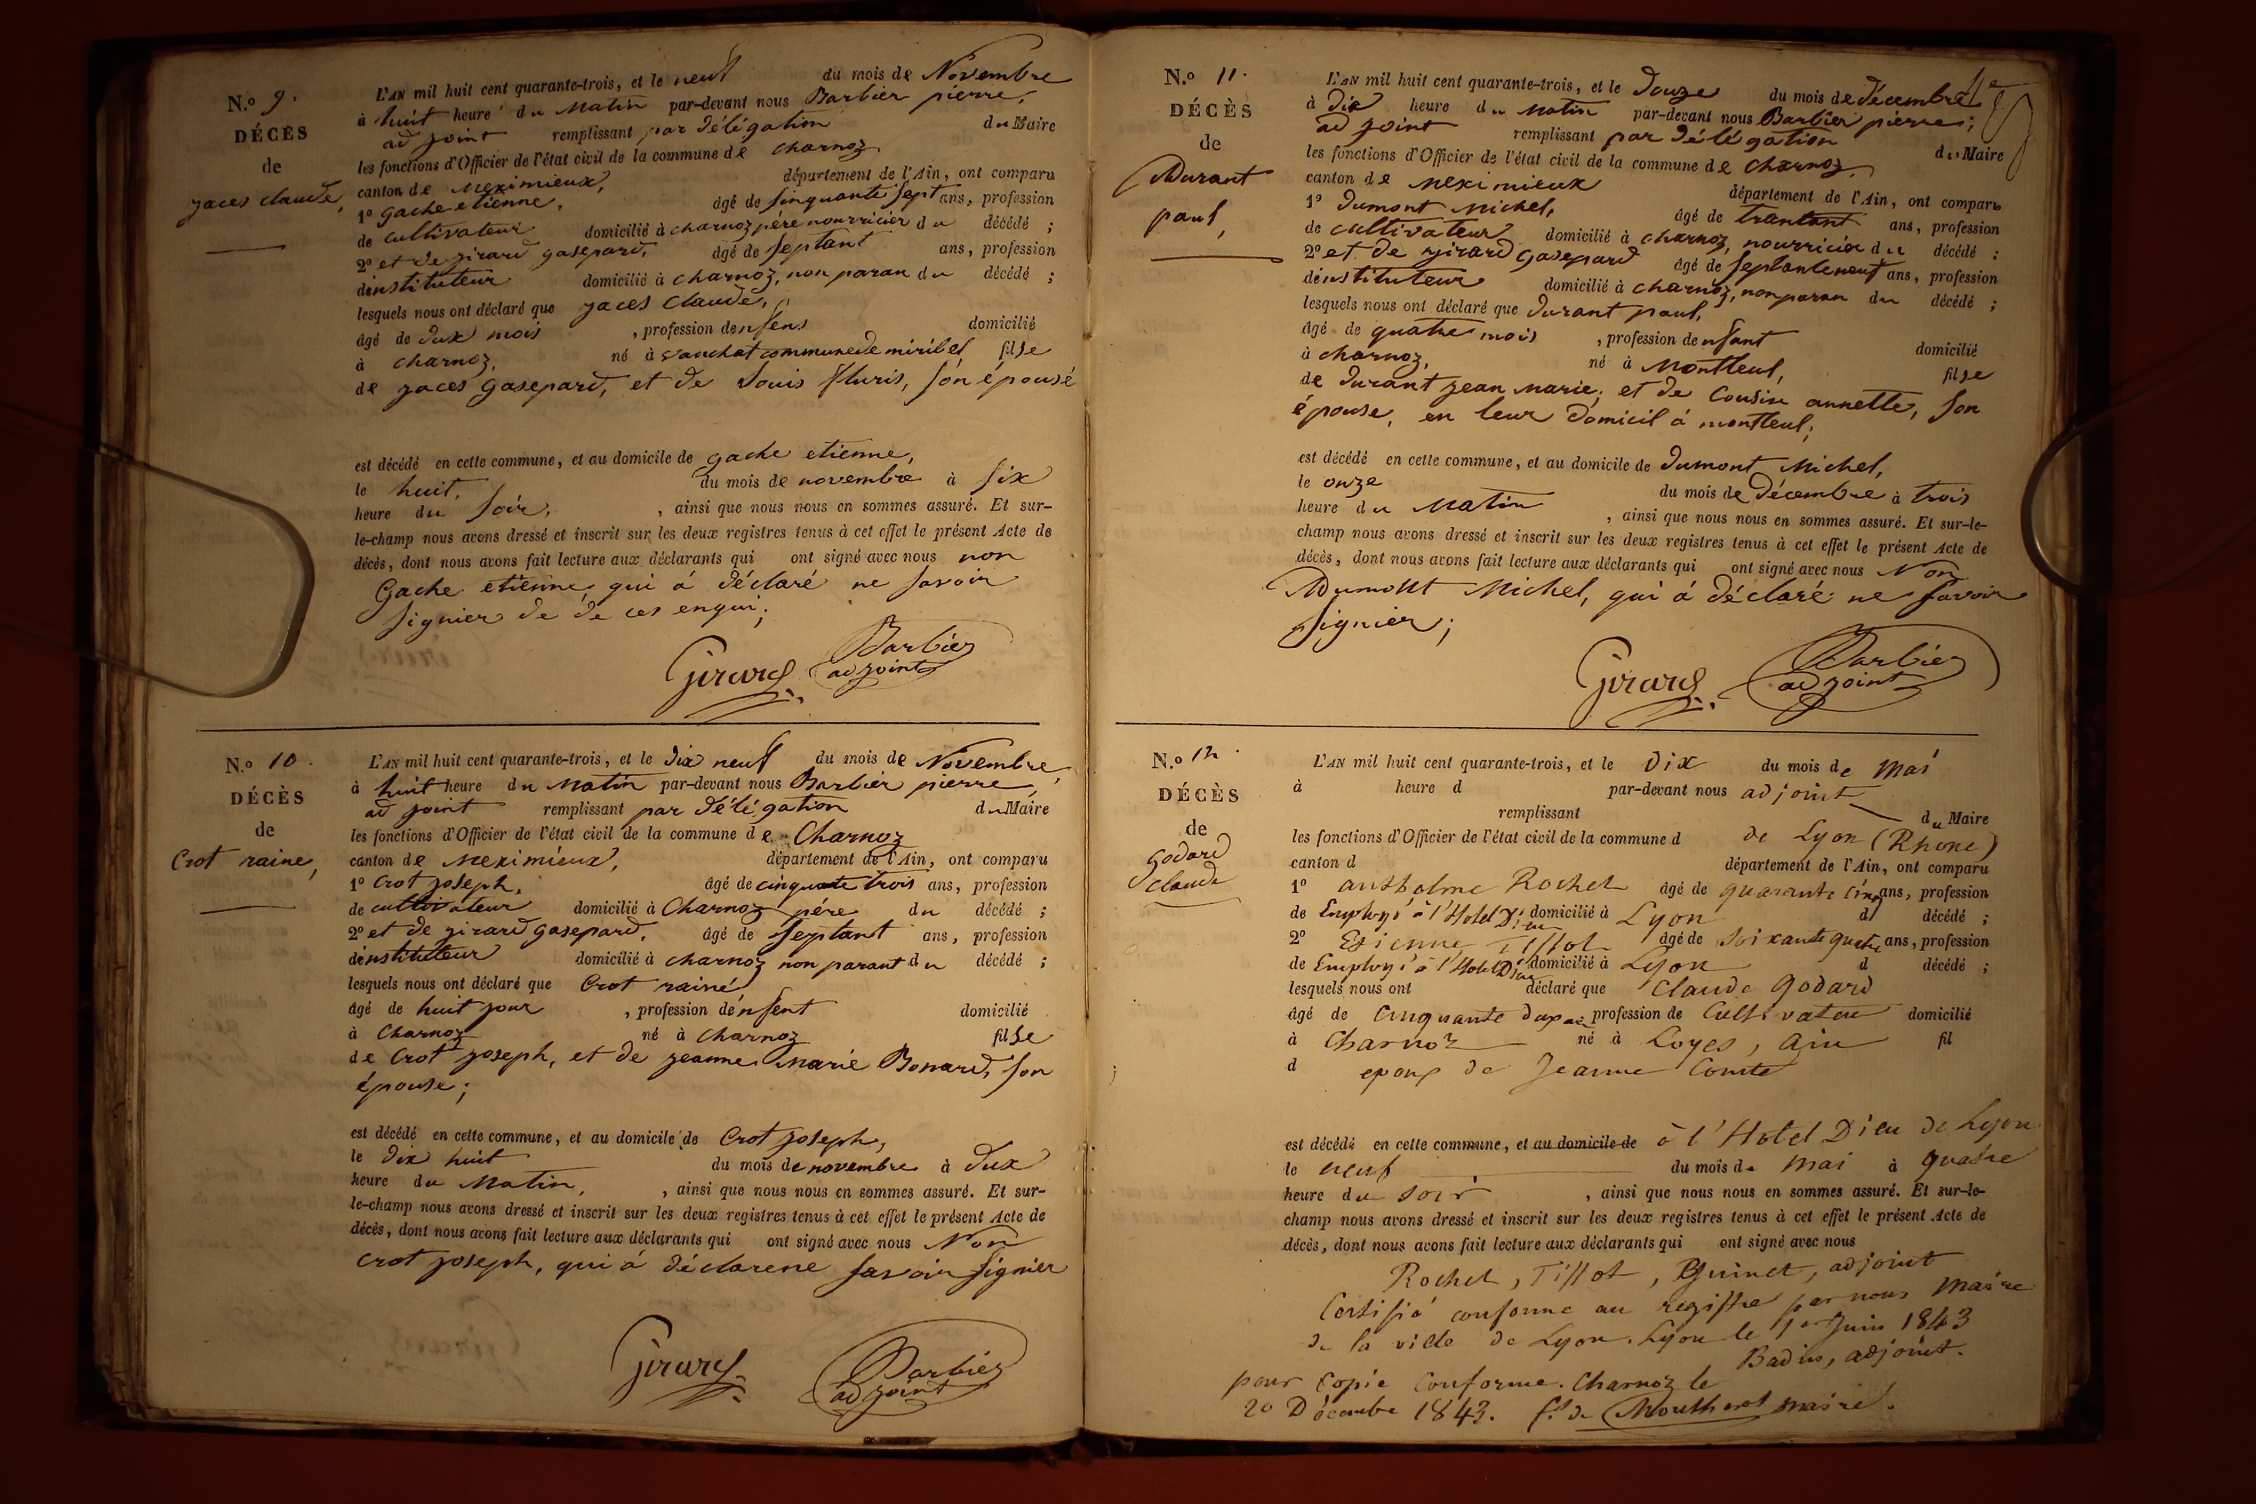 N.o 9.
DÉCÈS
de
jaces claude,
L'AN mil huit cent quarante-trois, et le neuf du mois de Novembre
à huit heure du Matin par-devant nous Barbier pierre,
adjoint remplissant par délégation du Maire
les fonctions d'Officier de l'état civil de la commune de charnoz
canton de Meximieux, département de l'Ain, ont comparu
1o gache etienne, âgé de sinquante sept ans, profession
de cultivateur domicilié à charnoz père nourricier du décédé ;
2o et de girard gasepard, âgé de septant ans, profession
dinstituteur domicilié à charnoz, non paran du décédé ;
lesquels nous ont déclaré que jaces claude,
âgé de dux mois , profession densens domicilié
à charnoz, né à vanchat commune de miribel fils e
de jaces gasepard, et de Louis fluris, son épousé
est décédé en cette commune, et au domicile de gache etienne,
le huit, du mois de novembre à six
heure du soir, , ainsi que nous nous en sommes assuré. Et sur-
le-champ nous avons dressé et inscrit sur les deux registres tenus à cet effet le présent Acte de
décès, dont nous avons fait lecture aux déclarants qui ont signé avec nous non
Gache etienne qui à déclaré ne savoir
signier de de ces enqui;
Girard Barbier
adjoint
N.o 10.
DÉCÈS
de
Crot raine,
L'AN mil huit cent quarante-trois, et le dix neuf du mois de Novembre,
à huit heure du Matin par-devant nous Barbier pierre,
adjoint remplissant par délégation du Maire
les fonctions d'Officier de l'état civil de la commune de Charnoz
canton de Meximieux, département de l'Ain, ont comparu
1o Crot joseph, âgé de cinquante trois ans, profession
de cultivateur domicilié à Charnoz père du décédé ;
2o et de girard gasepard, âgé de septant ans, profession
dinstituteur domicilié à charnoz non parant du décédé ;
lesquels nous ont déclaré que Crot rainé
âgé de huit jour , profession dénsent domicilié
à Charnoz né à Charnoz fils e
de Crot joseph, et de jeanne Marie Bonard, son
épouse;
est décédé en cette commune, et au domicile de Crot joseph,
le dix huit du mois de novembre à dux
heure du Matin, , ainsi que nous nous en sommes assuré. Et sur-
le-champ nous avons dressé et inscrit sur les deux registres tenus à cet effet le présent Acte de
décès, dont nous avons fait lecture aux déclarants qui ont signé avec nous Non
crot joseph, qui à déclarene savoir signier
Girard Barbier
adjoint
N.o 11.
DÉCÈS
de
Durant
paul,
L'AN mil huit cent quarante-trois, et le Douze du mois de décembre
à dix heure du Matin par-devant nous Barbier pierre;
adjoint remplissant par délégation du Maire
les fonctions d'Officier de l'état civil de la commune de charnoz,
canton de Meximieux département de l'Ain, ont comparu
1o dumont Michel, âgé de trantant ans, profession
de cultivateur domicilié à charnoz, nourricier du décédé ;
2o et de girard Gasepard âgé de septante neuf ans, profession
dinstituteur domicilié à charnoz, non paran du décédé ;
lesquels nous ont déclaré que durant paul,
âgé de quatre mois , profession densant domicilié
à charnoz, né à Montleul, fils e
de durant jean Marie; et de Cousin annette, son
épouse, en leur domicil à montleul;
est décédé en cette commune, et au domicile de dumont Michel,
le onze du mois de décembre à trois
heure du Matin , ainsi que nous nous en sommes assuré. Et sur-le-
champ nous avons dressé et inscrit sur les deux registres tenus à cet effet le présent Acte de
décès, dont nous avons fait lecture aux déclarants qui ont signé avec nous Non
Dumont Michel, qui à déclaré ne savoir
signier;
Girard Barbier
adjoint
N.o 12.
DÉCÈS
de
Godard
claude
L'AN mil huit cent quarante-trois, et le Dix du mois de mai
à heure d par-devant nous adjoint
remplissant du Maire
les fonctions d'Officier de l'état civil de la commune d de Lyon (Rhone)
canton d département de l'Ain, ont comparu
1o anthelme Rochet âgé de quarante cinq ans, profession
de Employé à l'Hotel Dieu domicilié à Lyon d décédé ;
2o Etienne Tissot âgé de soixante quatre ans, profession
de Employé à l'Hotel Dieu domicilié à Lyon d décédé ;
lesquels nous ont déclaré que Claude Godard
âgé de Cinquante deux ans profession de Cultivateur domicilié
à Charnoz né à Loyes, Ain fil
d epoux de Jeanne Comte
est décédé en cette commune, et au domicile de à l'Hotel Dieu de Lyon
le neuf du mois de mai à quatre
heure du soir , ainsi que nous nous en sommes assuré. Et sur-le-
champ nous avons dressé et inscrit sur les deux registres tenus à cet effet le présent Acte de
décès, dont nous avons fait lecture aux déclarants qui ont signé avec nous
Rochet, Tissot, Guinet, adjoint
Certifié conforme au registre par nous Maire
de la ville de Lyon. Lyon le 1er Juin 1843
Badin, adjoint.
pour Copie Conforme. Charnoz le
20 Décembre 1843. maire.